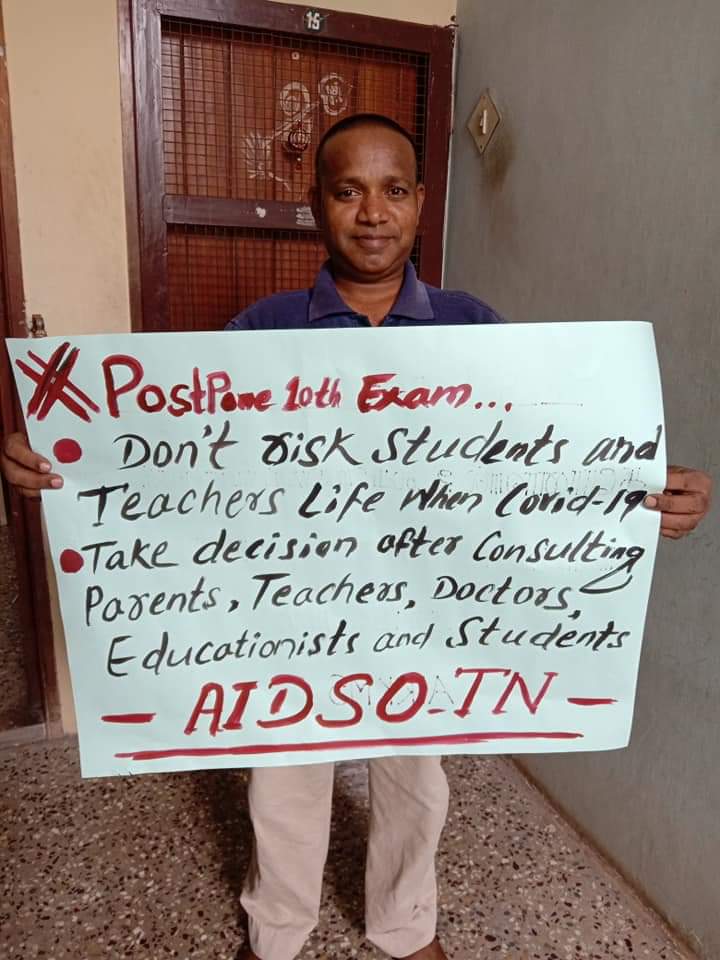 15
Postpone 10th Exam...
Don't risk Students and
Teachers Life when Covid-19
Take decision after Consulting
Parents, Teachers, Doctors,
Educationists and Students
- AIDSO-TN -